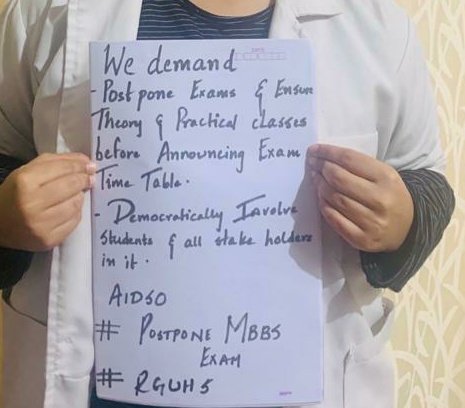 We demand
- Postpone Exams & Ensure
Theory & Practical classes
before Announcing Exam
Time Table.
- Democratically Involve
Students & all stake holders
in it.
AIDSO
# POSTPONE MBBS
EXAM
# RGUHS